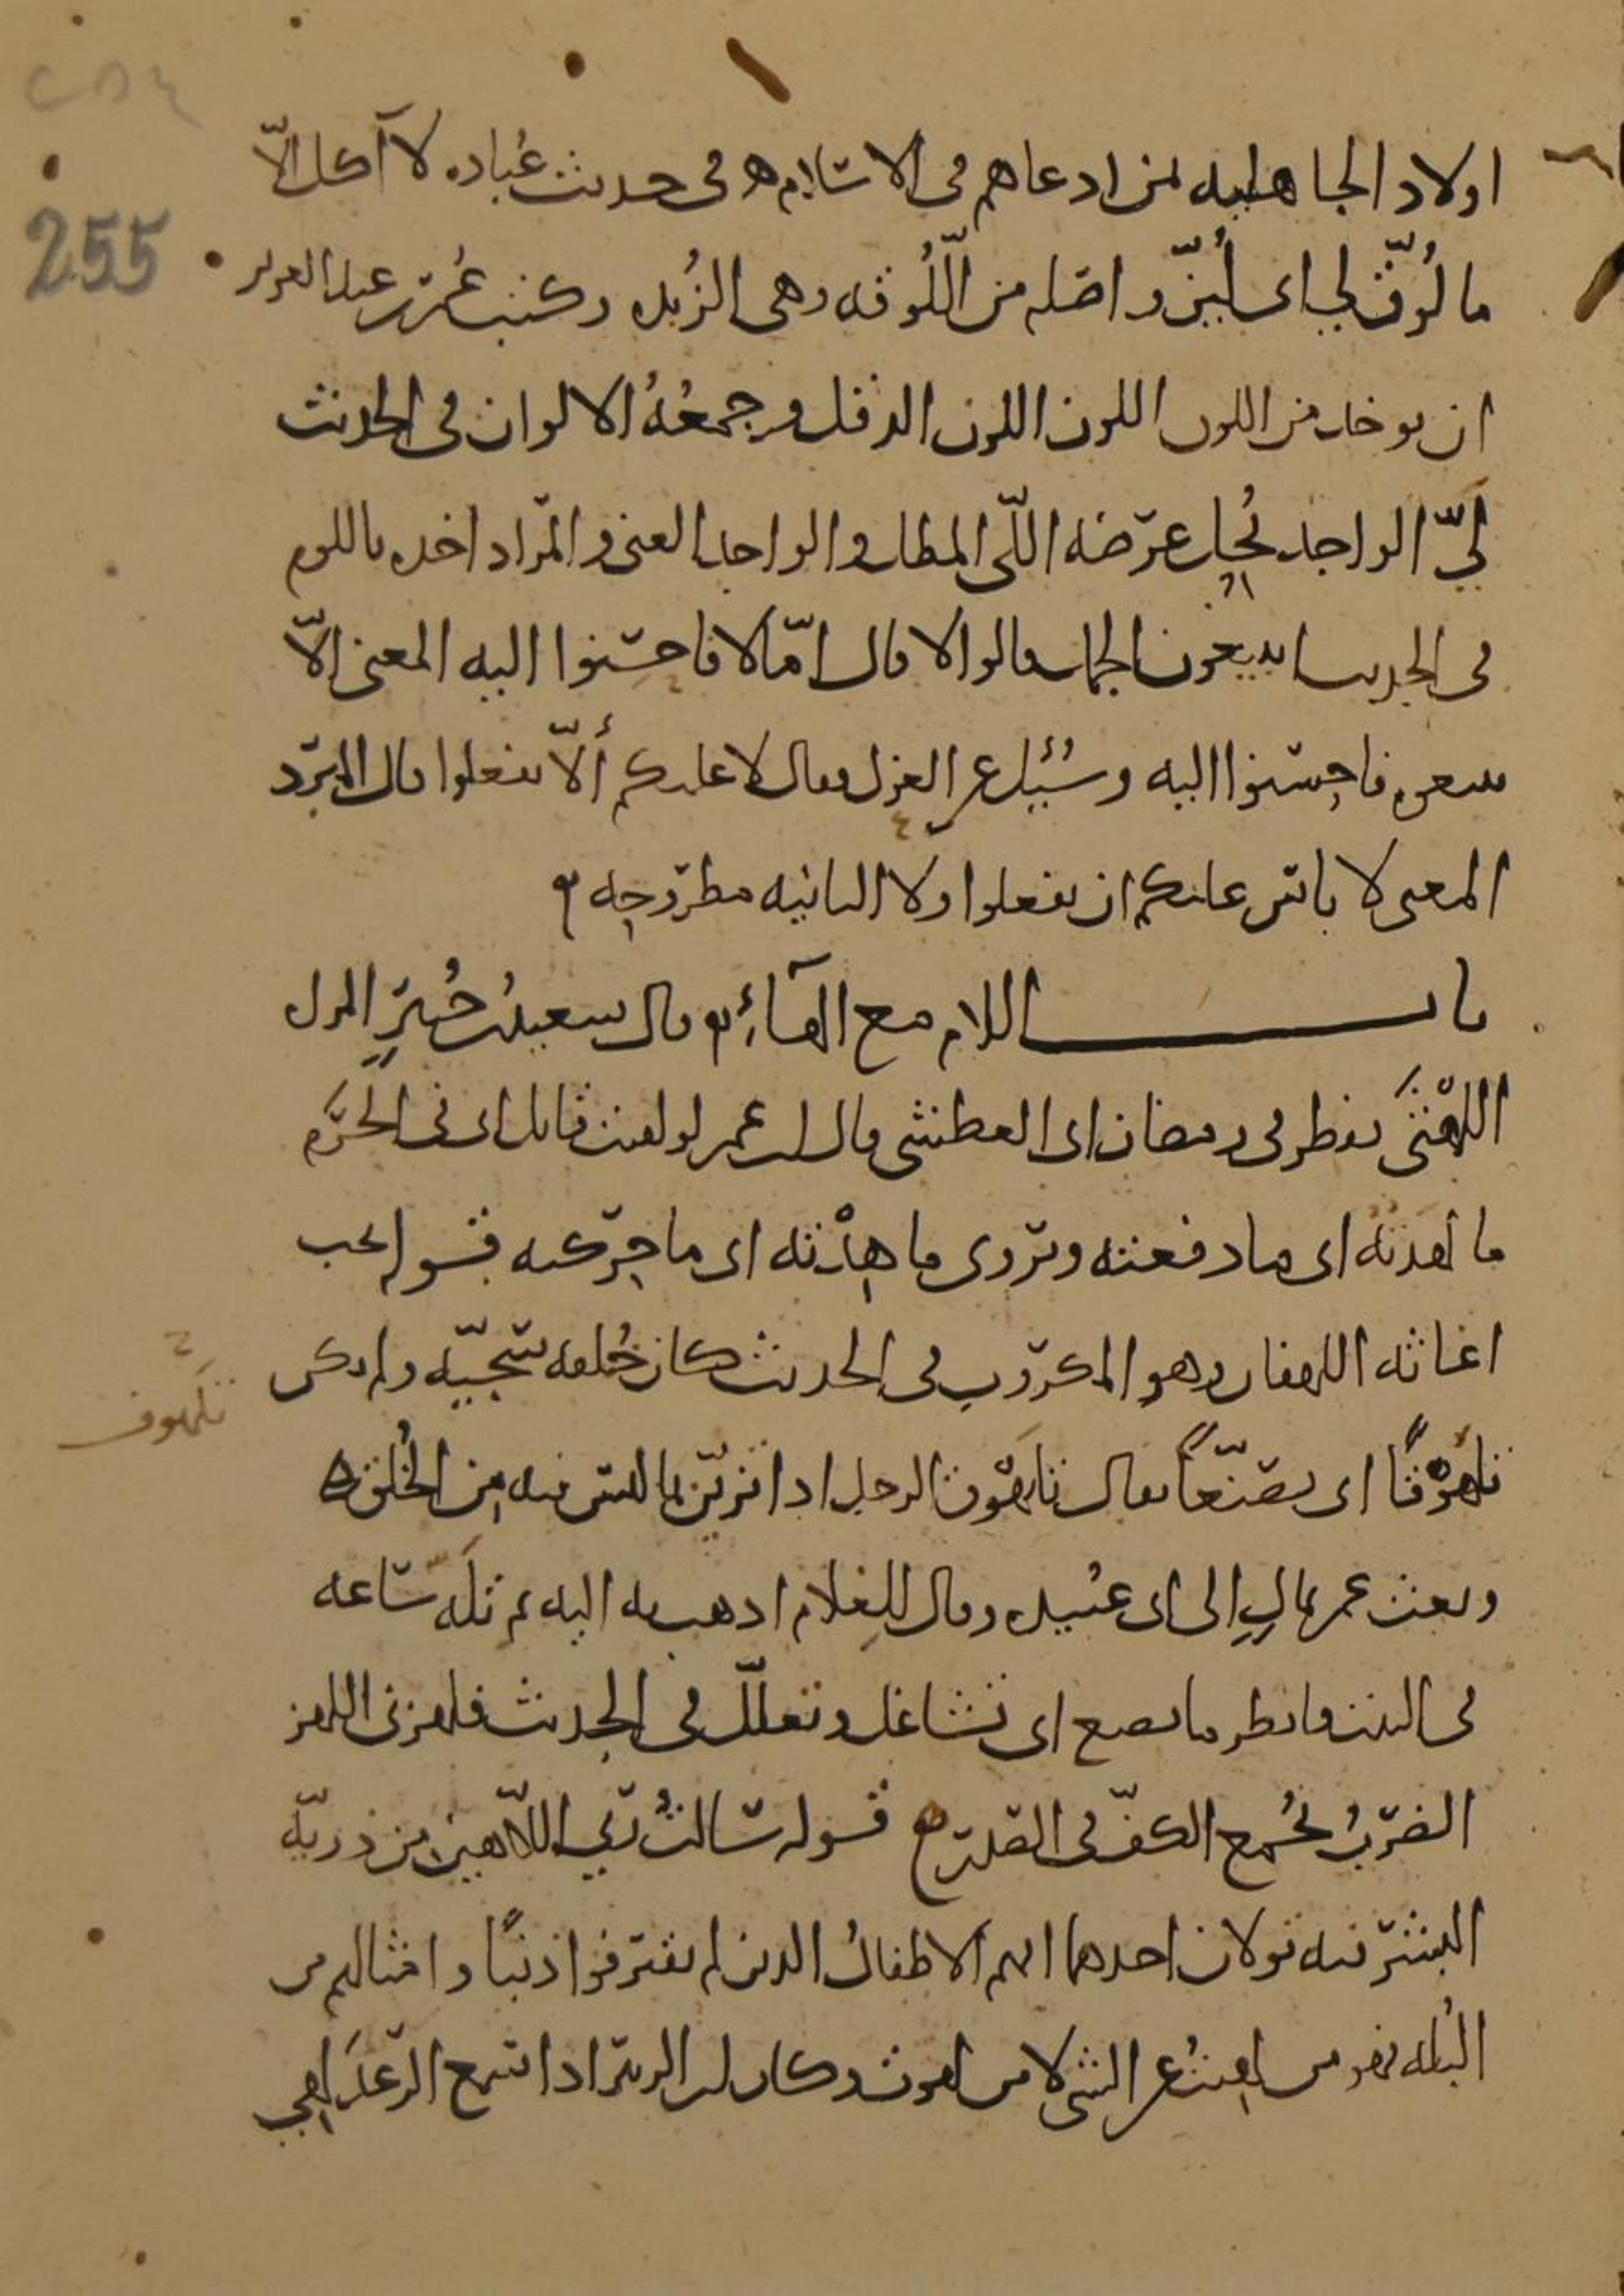 ٢٥٤
255
اولاد الجاهليه لمن ادعاهم فى الاسلام ه فى حديث عُباده لا آكل الّا
ما لُوّق لي اى لُيّن واصله من اللُّوقه وهى الزُبده وكتب عُمر بن عبد العزيز
ان يوخذ من اللون اللون الدقل وجمعُهُ الالوان فى الحديث
لَيُّ الواجد يُحِل عرضه اللّى المطل والواجد الغنى والمراد اخذه باللوم
فى الحديث ابيعون الجمل قالوا لا قال امّا لا فاحسنوا اليه المعنى الّا
تبيعوه فاحسنوا اليه وسُئِل عن العزل فقال لا عليكم ألّا تفعلوا قال المبرد
المعنى لا باس عليكم ان تفعلوا ولا الثانيه مطروحه
باب اللام مع الهاء قال سعيد بن جُبير المراه
اللهثى تفطر فى رمضان اى العطشى قال ابن عمر لو لقيت قاتل ابى فى الحرَم
ما لهدتُه اى ما دفعته وتروى ما هِدْته اى ما حركته قوله يحب
اغاثه اللهفان وهو المكروب فى الحديث كان خُلقه سجيّه ولم يكن
تلهوقًا اى تصنّعًا يقال تلهوق الرجل اذا تزيّن بما ليس فيه من الخُلق ه
تلهوف
وبعث عمر بمالٍ الى ابى عُبيده وقال للغلام اذهب به اليه ثم تَلَهّ ساعه
فى البيت وانظر ما يصنع اى تشاغل وتعلّل فى الحديث فلهزنى اللهز
الضربُ بجُمع الكف فى الصدر ه قوله سالتُ ربي اللاهين من ذريّه
البشر فيه قولان احدهما انهم الاطفالُ الذين لم يقترفوا ذنبًا وامثالهم من
البُله فهو من لهِيتُ عن الشى لا من لهوت وكان ابن الزبير اذا سمع الرعد لهِي